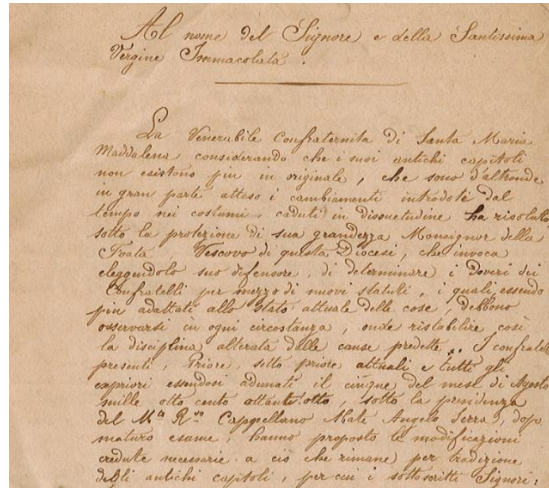 Al nome del Signore e della Santissima
Vergine Immacolata.
La Venerabile Confraternita di Santa Maria
Maddalena considerando che i suoi antichi capitoli
non esistono piu in originale, che sono d'altronde
in gran parte atteso i cambiamenti introdoti dal
tempo nei costumi, caduti in dissuetudine ha risoluto
sotto la protezione di sua grandezza Monsignor della
Foata Vescovo di questa Diocesi, che invoca
eleggendolo suo defensore, di determinare i Doveri dei
Confratelli per mezzo di nuovi statuti, i quali essendo
piu adattati allo Stato attuale delle cose, debbono
osservarsi in ogni circostanza, onde ristabilire così
la disciplina alterata dalle cause predette. I confratelli
presenti, Priore, sotto priore attuali e tutti gli
capriori essendosi adunati il cinque del mese di Agosto
mille otto cento ottanta otto, sotto la presidenza
del Mto Rdo Cappellano Abate Angelo Serra, dopo
maturo esame, hanno proposto le modificazioni
credute necessarie a ciò che rimane per tradizione
degli antichi capitoli, per cui i sottoscritti Signori: